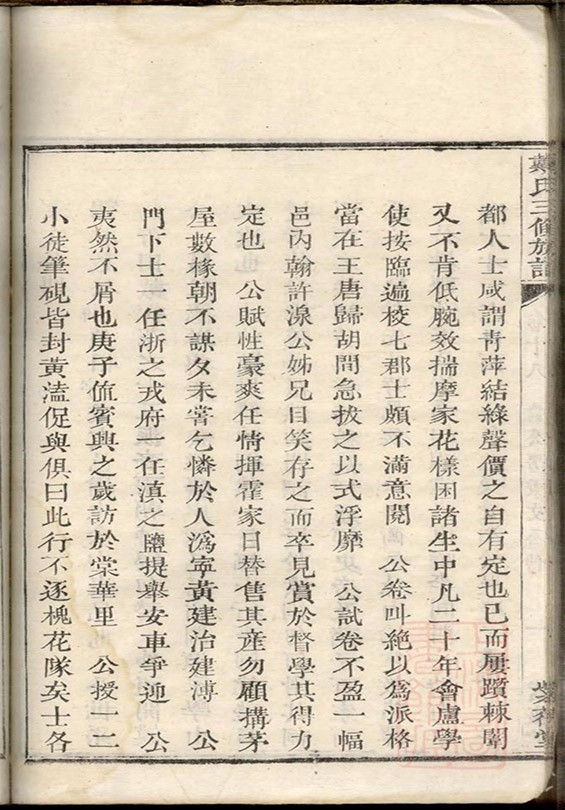 戴氏三修族譜
都人士咸謂青萍結綠聲價之自有定也已而屢躓棘闈
又不肯低腕效揣摩家花樣困諸生中凡二十年會盧學
使按臨遍校七郡士頗不滿意閱 公卷叫絕以爲派格
當在王唐歸胡間急拔之以式浮靡 公試卷不盈一幅
邑內翰許湶公姊兄目笑存之而卒見賞於督學其得力
定也 公賦性豪爽任情揮霍家日替售其產勿顧搆茅
屋數椽朝不謀夕未嘗乞憐於人爲寧黃建治建溥 公
門下士一任浙之戎府一任滇之鹽提舉安車爭迎 公
夷然不屑也庚子值賓興之歲訪於棠華里 公授一二
小徒筆硯皆封黃溘促與俱曰此行不逐槐花隊矣士各